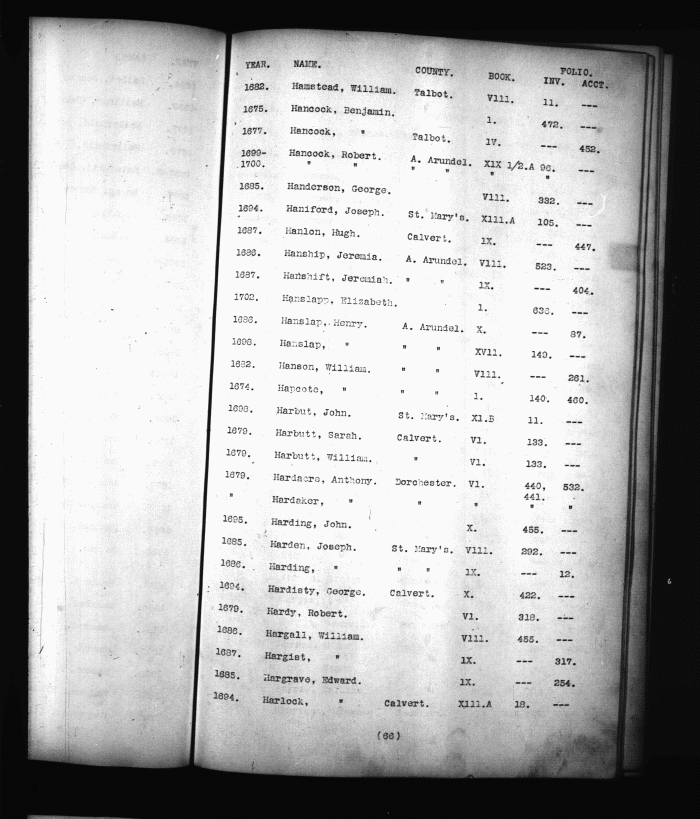 YEAR. NAME. COUNTY. BOOK. FOLIO.
INV. ACCT.
1682. Hamstead, William. Talbot. V111. 11. ---
1675. Hancock, Benjamin. 1. 472. ---
1677. Hancock, " Talbot. 1V. --- 452.
1699- Hancock, Robert. A. Arundel. X1X 1/2.A 96. ---
1700. " " " " " "
1685. Handerson, George. V111. 332. ---
1694. Haniford, Joseph. St. Mary's. X111.A 105. ---
1687. Hanlon, Hugh. Calvert. 1X. --- 447.
1686. Hanship, Jeremia. A. Arundel. V111. 523. ---
1687. Hanshift, Jeremiah. " " 1X. --- 404.
1702. Hanslapp, Elizabeth. 1. ---
1686. Hanslap, Henry. A. Arundel. X. --- 87.
1698. Hanslap, " " " XV11. 149. ---
1682. Hanson, William. " " V111. --- 261.
1674. Hapcote, " " " 1. 140. 460.
1698. Harbut, John. St. Mary's. X1.B 11. ---
1679. Harbutt, Sarah. Calvert. V1. 133. ---
1679. Harbutt, William. " V1. 133. ---
1679. Hardacre, Anthony. Dorchester. V1. 440, 532.
441.
" Hardaker, " " " " "
1695. Harding, John. X. 455. ---
1685. Harden, Joseph. St. Mary's. V111. 292. ---
1686. Harding, " " " 1X. --- 12.
1694. Hardisty, George. Calvert. X. 422. ---
1679. Hardy, Robert. V1. 318. ---
1686. Hargall, William. V111. 455. ---
1687. Hargist, " 1X. --- 317.
1685. Hargrave, Edward. 1X. --- 254.
1694. Harlock, " Calvert. X111.A 18. ---
(66)